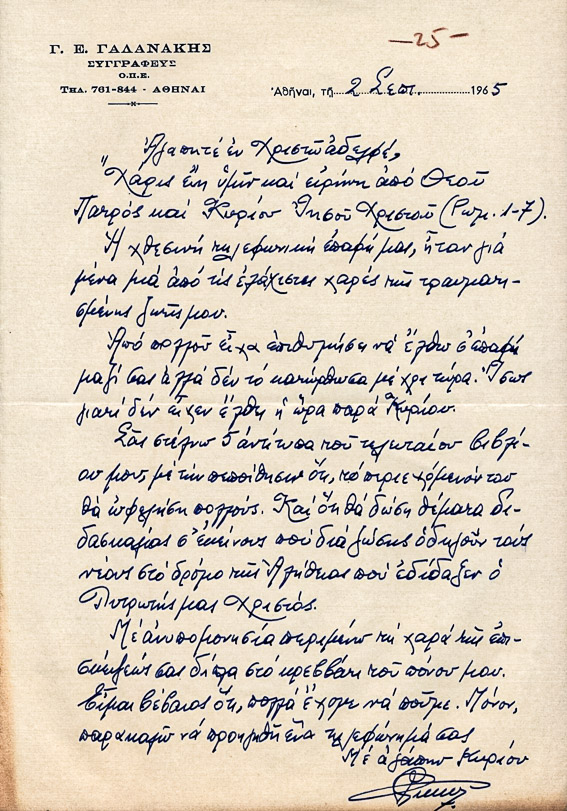 —25—
Γ. Ε. ΓΑΛΑΝΑΚΗΣ
ΣΥΓΓΡΑΦΕΥΣ
Ο.Π.Ε.
ΤΗΛ. 761-844 - ΑΘΗΝΑΙ
Ἀθῆναι, τῇ 2 Σεπ. 1965
Ἀγαπητέ ἐν Χριστῷ ἀδελφέ,
"Χάρις εἴη ὑμῖν καί εἰρήνη ἀπό Θεοῦ
Πατρός καί Κυρίου Ἰησοῦ Χριστοῦ (Ρωμ. 1-7).
Ἡ χθεσινή τηλεφωνική ἐπαφή μας, ἦταν γιά
μένα μιά ἀπό τίς ἐλάχιστες χαρές τῆς τραυματι-
σμένης ζωῆς μου.
Ἀπό πολλοῦ εἶχα ἐπιθυμήσει νά ἔλθω σ' ἐπαφή
μαζί σας ἀλλά δέν τό κατώρθωσα μέχρι τώρα. Ἴσως
γιατί δέν εἶχεν ἔλθη ἡ ὥρα παρά Κυρίου.
Σᾶς στέλνω 5 ἀντίτυπα τοῦ τελευταίου βιβλί-
ου μου, μέ τήν πεποίθησιν ὅτι, τό περιεχόμενόν του
θά ὠφελήση πολλούς. Καί ὅτι θά δώση θέματα δι-
δασκαλίας σ' ἐκείνους πού διά ζώσης ὁδηγοῦν τούς
νέους στό δρόμο τῆς Ἀλήθειας πού ἐδίδαξεν ὁ
Λυτρωτής μας Χριστός.
Μέ ἀνυπομονησία περιμένω τή χαρά τῆς ἐπι-
σκέψεώς σας δίπλα στό κρεββάτι τοῦ πόνου μου.
Εἶμαι βέβαιος ὅτι, πολλά ἔχομε νά ποῦμε. Μόνον,
παρακαλῶ νά προηγηθῆ ἕνα τηλεφώνημά σας
Μέ ἀγάπην Κυρίου